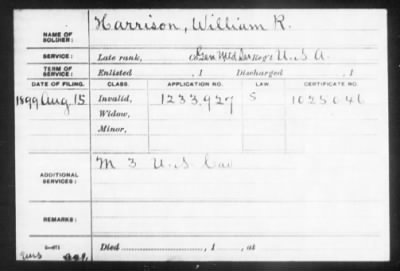 NAME OF SOLDIER: Harrison, William R.
SERVICE: Late rank, Co. Gen Mtd Ser Reg't U.S.A
TERM OF SERVICE: Enlisted , 1 Discharged , 1
DATE OF FILING. CLASS. APPLICATION NO. LAW. CERTIFICATE NO.
1899 Aug 15 Invalid, 1233,927 S 1025046
Widow,
Minor,
ADDITIONAL SERVICES: M 3 U.S. Cav
REMARKS:
Died , 1 , at